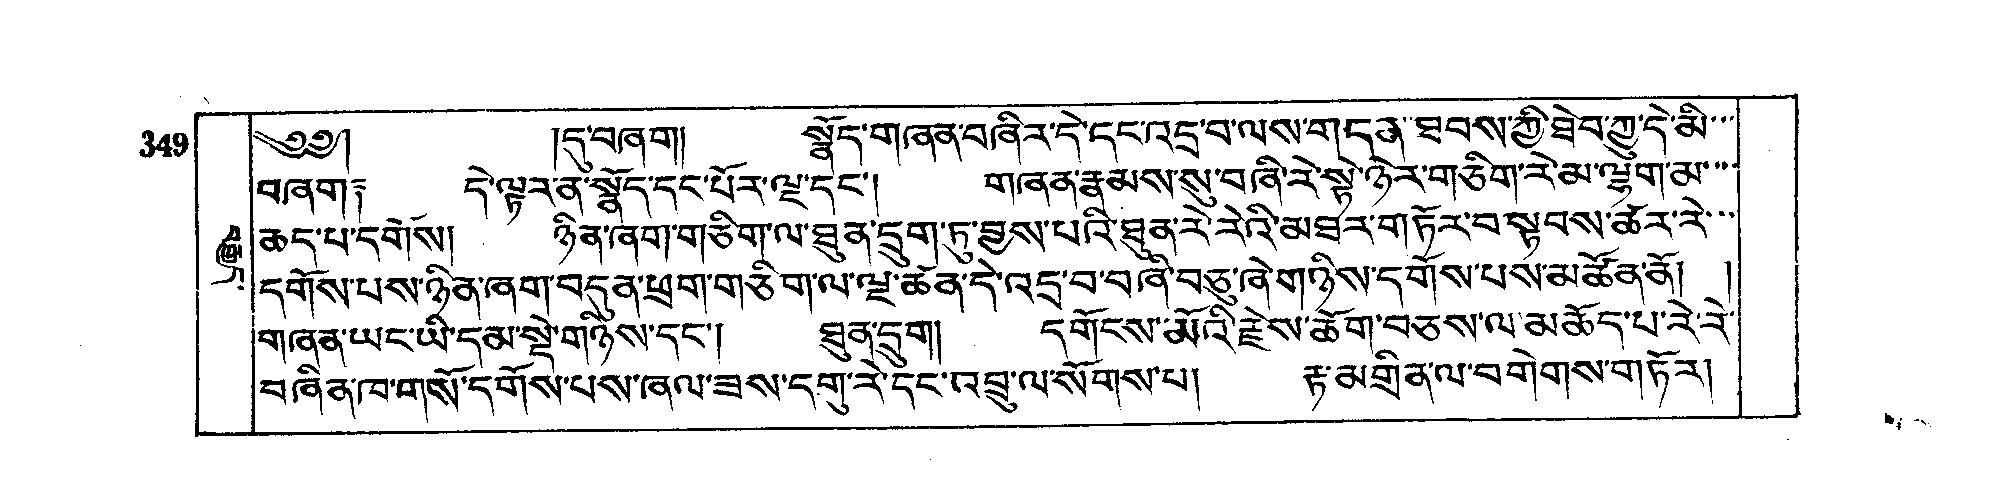 349
༄༅། །དུ་བཞག། སྣོད་གཞན་བཞིར་དེ་དང་འདྲ་བ་ལས་གདན་ཐབས་ཀྱི་ཐེབ་ཀྱུ་དེ་མི་
བཞག༔ དེ་ལྟར་ན་སྣོད་དང་པོར་ལྔ་དང་། གཞན་རྣམས་སུ་བཞི་རེ་སྟེ་ཉེར་གཅིག་རེ་མ་ལྷག་མ་
ཆད་པ་དགོས། ཉིན་ཞག་གཅིག་ལ་ཐུན་དྲུག་ཏུ་བྱས་པའི་ཐུན་རེ་རེའི་མཐར་གཏོར་བ་སྟབས་ཚར་རེ་
དགོས་པས་ཉིན་ཞག་བདུན་ཕྲག་གཅིག་ལ་ལྔ་ཚོན་དེ་འདྲ་བ་བཞི་བཅུ་ཞེ་གཉིས་དགོས་པས་མཚོན་ནོ། །
གཞན་ཡང་ཡི་དམ་སྡེ་གཉིས་དང་། ཐུན་དྲུག། དགོངས་མོའི་རྗེས་ཚོག་བཅས་ལ་མཆོད་པ་རེ་རེ་
བཞིན་ཁ་གསོ་དགོས་པས་ཞལ་ཟས་དགུ་རེ་དང་འབྲུ་ལ་སོགས་པ། རྟ་མགྲིན་ལ་བགེགས་གཏོར།